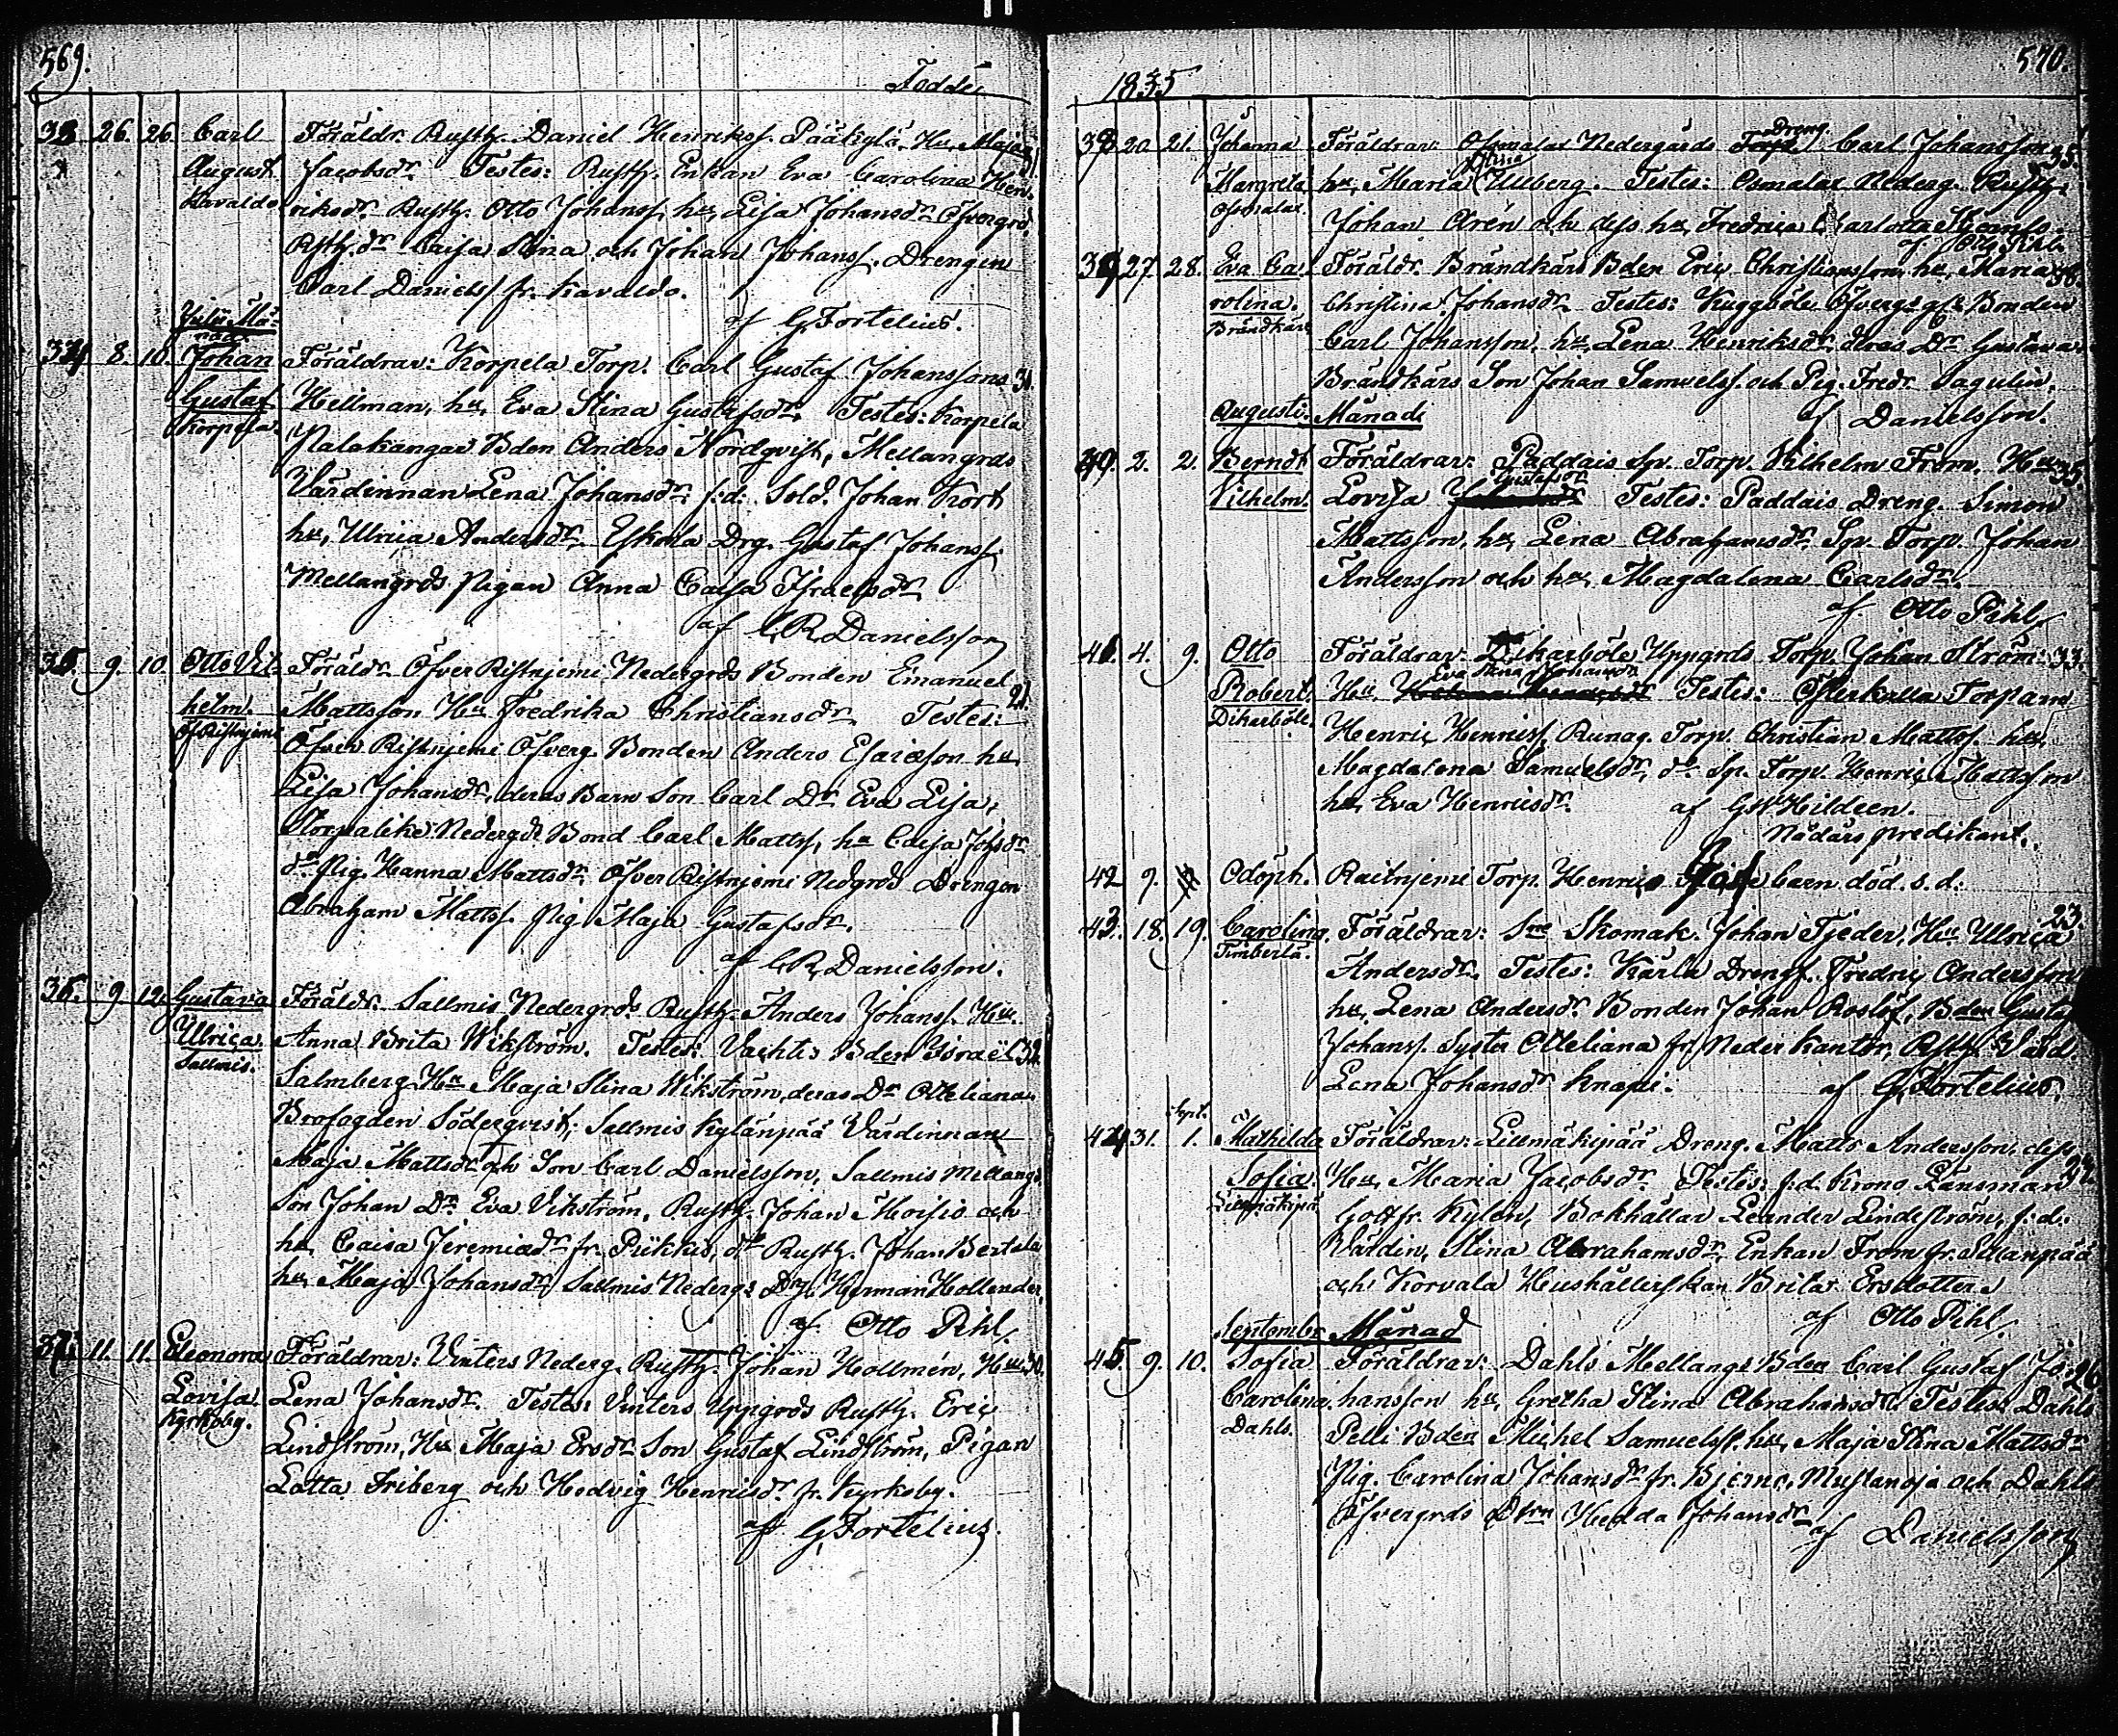 569.
Födde
33. 26. 26. Carl Föräldr. Rusth. Daniel Henrikss. Pääkylä, Hu. Maja
August. Jacobsdr. Testes: Rusth. Enkan Eva Carolina Hen-
Kavaldo riksdr. Rusth. Otto Johanss. hu, Lisa Johansdr Öfvergrd,
Rsth. dr Caisa Stina och Johan Johanss. Drengen
Carl Daniels fr. Kavaldo.
af G. Fortelius.
Julii Må-
nad
34 8. 10. Johan Föräldrar: Korpela Torp. Carl Gustaf Johansson 31.
Gustaf Hellman, hu, Eva Stina Gustafsdr. Testes: Korpela
Korpela. Palokangas Bden Anders Nordqvist, Mellangrds
Värdinnan Lena Johansdr. f:d: Sold. Johan Kort
hu, Ulrica Andersdr. Eskola Drg. Gustaf Johanss.
Mellangrds Pigan Anna Caisa Israelsdr
af C. R. Danielsson
35. 9. 10. Otto Vil- Föräldr. Öfver Ristniemi Nedergrds Bonden Emanuel
helm. Mattsson Hu Fredrika Christiansdr. Testes: 21.
Öf. Ristnjemi Öfver Ristnjemi Öfverg. Bonden Anders Esaiasson hu
Lisa Johansdr, deras Barn Son Carl Dr Eva Lisa,
Nedergds Bond Carl Matts, hu Caisa Johsdr
do Pig. Hanna Mattsdr. Öfver Ristnjemi Nedgrds Drengen
Abraham Matts. Pig. Maja Gustafsdr.
af C. R. Danielsson.
36. 9. 12. Gustava Föräldr. Sallmis Nedergrds Rusth. Anders Johanss. Hu.
Ulrica. Anna Brita Wikström. Testes: Vachtis Bden Israel 32.
Sallmis. Salmberg Hu Maja Stina Wikström, deras Dr Otteliana.
Brofogden Söderqvist, Sallmis Kylänpää Värdinnan
Maja Mattsdr och Son Carl Danielsson, Sallmis Mellang.
Son Johan Dr. Eva Vikström. Rusth. Johan Moisio och
hu, Caisa Jeremiædr fr. Pikkis, do Rusth. Johan Bertala
hu, Maja Johansdr Sallmis Nederg: Drg. Herman Hollender,
af Otto Pihl.
37. 11. 11. Eleonora Föräldrar: Vinters Nederg. Rusth. Johan Hollmén, Hu 30.
Lovisa. Lena Johansdr. Testes: Vinters Uppgrds Rusth. Eric
Kyrkoby. Lindström, Hu Maja Ersdr Son Gustaf Lindström, Pigan
Lotta Friberg och Hedvig Henricsdr. fr. Kyrkoby.
af G. Fortelius.
570.
1835
38 20. 21. Johanna Föräldrar: Osmalax Nedergårds Dreng. Carl Johansson 35.
Margreta hu, Maria Ullberg. Testes: Osmalax Nederg. Rusth.
Osmalax. Johan Arén och dess hu, Fredrica Charlotta
af Otto Pihl.
39 27 28. Eva Ca- Föräldr. Brändkärs Bden Eric Christiansson, hu, Maria 38.
rolina. Christina Johansdr Testes: Kuggböle Öfvergs Bonden
Brändkärs Carl Johansson, hu, Lena Henriksdr, deras Dr Gustava.
Brändkärs Son Johan Samuelss. och Pig. Fredr. Sagulin.
af Danielsson.
Augusti Månad
40. 2. 2. Berndt Föräldrar: Paddais Sp. Torp. Vilhelm From. Hu 35
Vilhelm. Lovisa Gustafsdr Testes: Paddais Dreng. Simon
Mattsson, hu, Lena Abrahamsdr. Sp. Torp. Johan
Andersson och hu, Magdalena Carlsdr.
af Otto Pihl
41. 4. 9. Otto Föräldrar: Dikarböle Uppgrds Torp. Johan Ström: 33.
Robert. Hu. Eva Stina Johansdr Testes: Österkulla Torparn
Dikarböle. Henric Henricss. Runag. Torp. Christian Matts. hu,
Magdalena Samuelsdr, do. Sp. Torp. Henric Mattsson
hu, Eva Henricsdr. af G. W. Hildeen.
Nådårs predikant.
42 9. Odöph. Raitnjemi Torp. Henrics barn död. s. d.
43. 18. 19. Carolina. Föräldrar: Sne Skomak. Johan Tjeder, Hu Ulrica 23.
Timberla. Andersdr. Testes: Kärla Drengs. Fredric Andersson
hu, Lena Andersdr. Bonden Johan Roslöf, Bden Gustaf
Johanss. Syster Otteliana fr. Neder Kantor, Rsth. Värd.
Lena Johansdr Knapi. af G. Fortelius.
Sept.
44 31. 1. Mathilda Föräldrar: Lillmäkipää Dreng. Matts Andersson, dess
Sofia. Hu, Maria Jacobsdr Testes: f.d. Krono Länsman 24.
Lillmäkipä Gottfr. Kylen, Bokhållar Leander Lindström, f:d:
Värdin, Stina Abrahamsdr, Enkan From fr. Sillanpää
och Korvala Hushållerskan Brita Ersdotter.
af Otto Pihl.
Septembr Månad
45. 9. 10. Sofia Föräldrar: Dahls Mellangs Bden Carl Gustaf Jo- 26
Carolina. hansson hu, Gretha Stina Abrahamsdr. Testes: Dahls
Dahls. Pelli Bden Michel Samuelss. hu, Maja Stina Mattsdr
Pig. Carolina Johansdr fr. Bjerno, Mustanoja och Dahls
Öfvergrds Drn Hedda Johansdr
af Danielsson